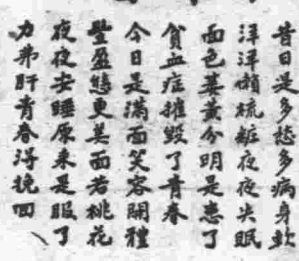 昔日是多愁多病身軟
洋洋懶梳粧夜夜失眠
面色萎黃分明是患了
貧血症摧毀了青春
今日是滿面笑容開體
豐盈態更美面若桃花
夜夜安睡原来是服了
力弗肝青春得挽回